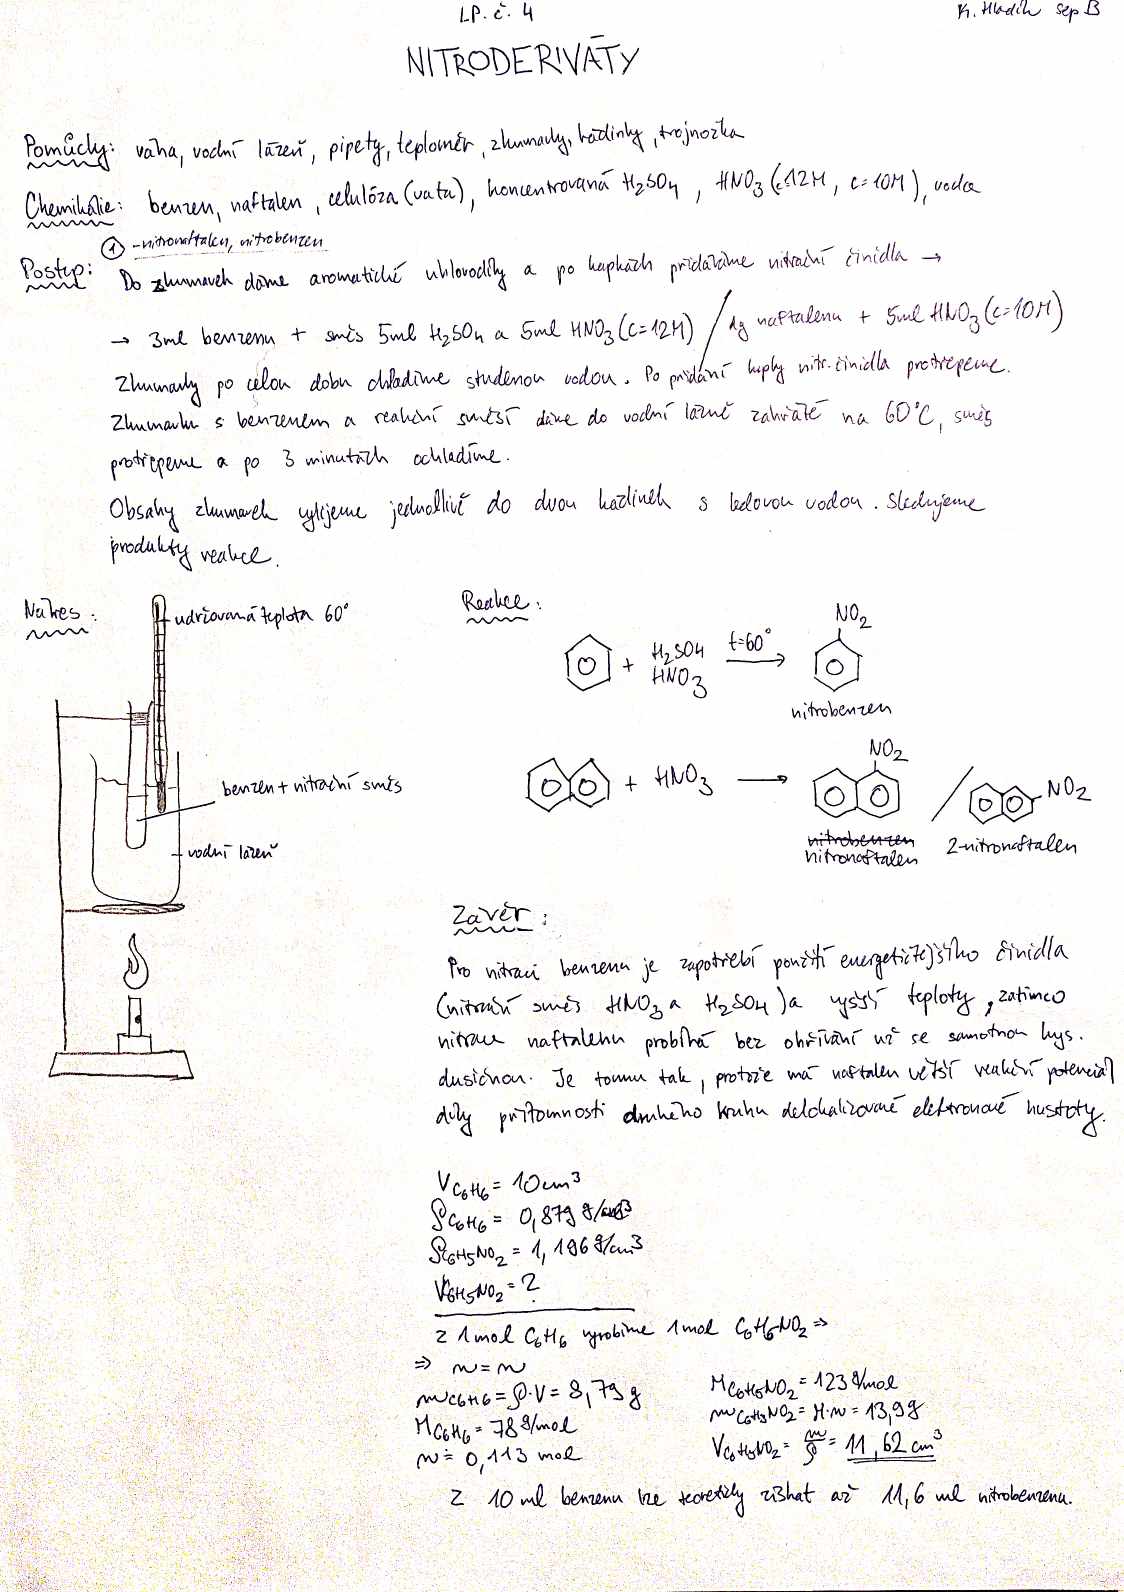 LP. č. 4
K. Hladík sep B
NITRODERIVÁTY
Pomůcky: váha, vodní lázeň, pipety, teploměr, zkumavky, kádinky, trojnožka
Chemikálie: benzen, naftalen, celulóza (vata), koncentrovaná H2SO4, HNO3 (c=12M, c=10M), voda
① -nitronaftalen, nitrobenzen
Postup: Do zkumavek dáme aromatické uhlovodíky a po kapkách přidáváme nitrační činidla →
→ 3ml benzenu + směs 5ml H2SO4 a 5ml HNO3 (c=12M) / 1g naftalenu + 5ml HNO3 (c=10M)
Zkumavky po celou dobu chladíme studenou vodou. Po přidání kapky nitr. činidla protřepeme.
Zkumavku s benzenem a reakční směsí dáme do vodní lázně zahřáté na 60°C, směs
protřepeme a po 3 minutách ochladíme.
Obsahy zkumavek vylijeme jednotlivě do dvou kádinek s ledovou vodou. Sledujeme
produkty reakce.
Nákres:
udržovaná teplota 60°
benzen + nitrační směs
vodní lázeň
Reakce:
+ H2SO4 HNO3 t=60° NO2
nitrobenzen
+ HNO3 → NO2 / NO2
nitrobenzen
nitronaftalen 2-nitronaftalen
Závěr:
Pro nitraci benzenu je zapotřebí použití energetičtějšího činidla
(nitrační směs HNO3 a H2SO4) a vyšší teploty, zatímco
nitrace naftalenu probíhá bez ohřívání už se samotnou kys.
dusičnou. Je tomu tak, protože má naftalen větší reakční potenciál
díky přítomnosti druhého kruhu delokalizované elektronové hustoty.
V C6H6 = 10 cm3
ρ C6H6 = 0,879 g/cm3
ρ C6H5NO2 = 1,196 g/cm3
V C6H5NO2 = ?
z 1 mol C6H6 vyrobíme 1 mol C6H5NO2 ⇒
⇒ n = n
m C6H6 = ρ·V = 8,79 g
M C6H6 = 78 g/mol
n = 0,113 mol
M C6H5NO2 = 123 g/mol
m C6H5NO2 = M·n = 13,9 g
V C6H5NO2 = m/ρ = 11,62 cm3
Z 10 ml benzenu lze teoreticky získat až 11,6 ml nitrobenzenu.